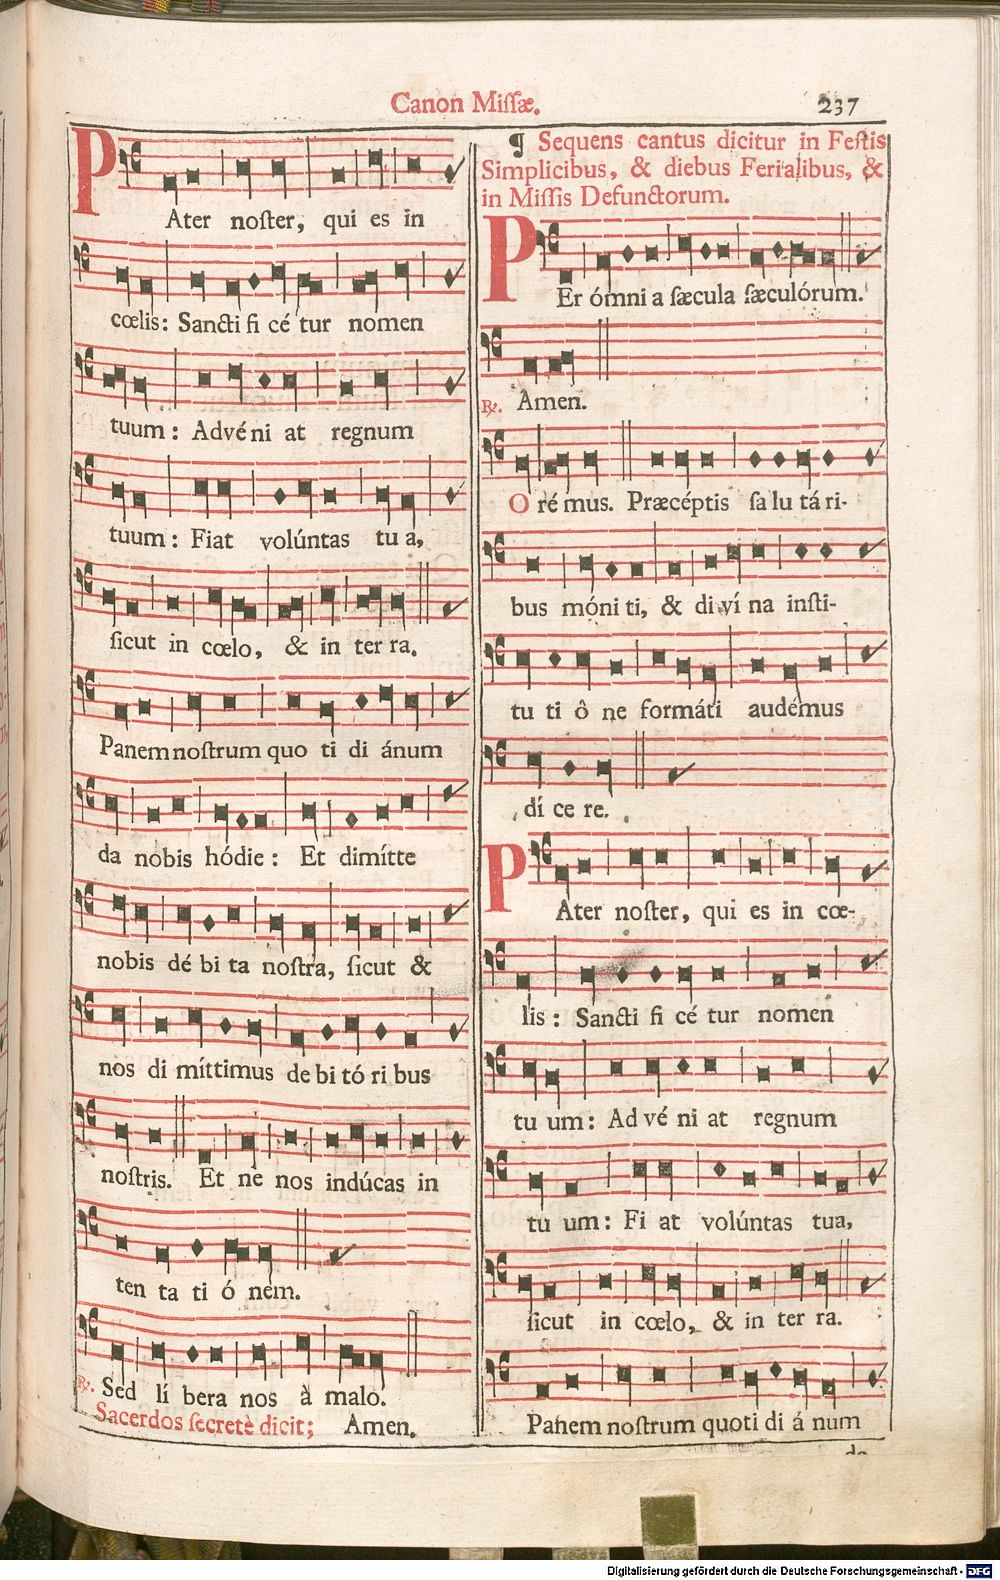 Canon Missæ.
237
PAter noster, qui es in
cœlis: Sancti fi cé tur nomen
tuum: Advéni at regnum
tuum: Fiat volúntas tu a,
sicut in cœlo, & in ter ra.
Panem nostrum quo ti di ánum
da nobis hódie: Et dimítte
nobis dé bi ta nostra, sicut &
nos di míttimus de bi tó ri bus
nostris. Et ne nos indúcas in
ten ta ti ó nem.
℟. Sed lí bera nos à malo.
Sacerdos secretè dicit; Amen.
¶ Sequens cantus dicitur in Festis
Simplicibus, & diebus Ferialibus, &
in Missis Defunctorum.
PEr ómni a sæcula sæculórum.
℟. Amen.
O ré mus. Præcéptis sa lu tá ri-
bus móni ti, & di ví na insti-
tu ti ô ne formáti audémus
dí ce re.
PAter noster, qui es in cœ-
lis: Sancti fi cé tur nomen
tu um: Ad vé ni at regnum
tu um: Fi at volúntas tua,
sicut in cœlo, & in ter ra.
Panem nostrum quoti di á num
da
Digitalisierung gefördert durch die Deutsche Forschungsgemeinschaft - DFG